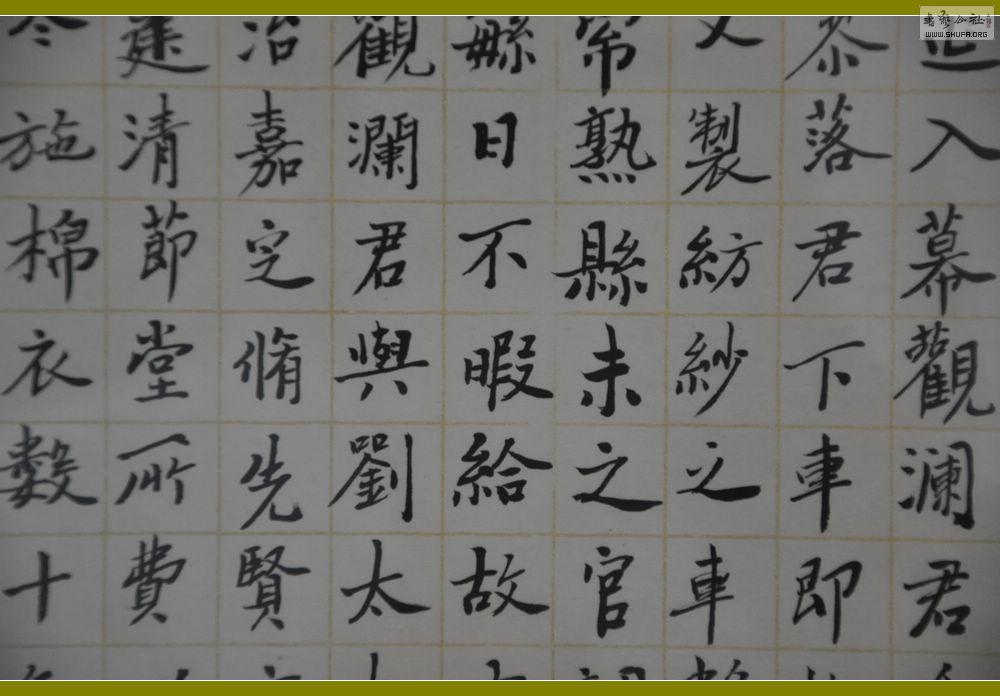 入幕觀瀾君
落君下車即
製紡紗之車
常熟縣未之官
緐日不暇給故
觀瀾君與劉太
治嘉定脩先賢
建清節堂所費
冬施棉衣數十
書藝公社
WWW.SHUFA.ORG